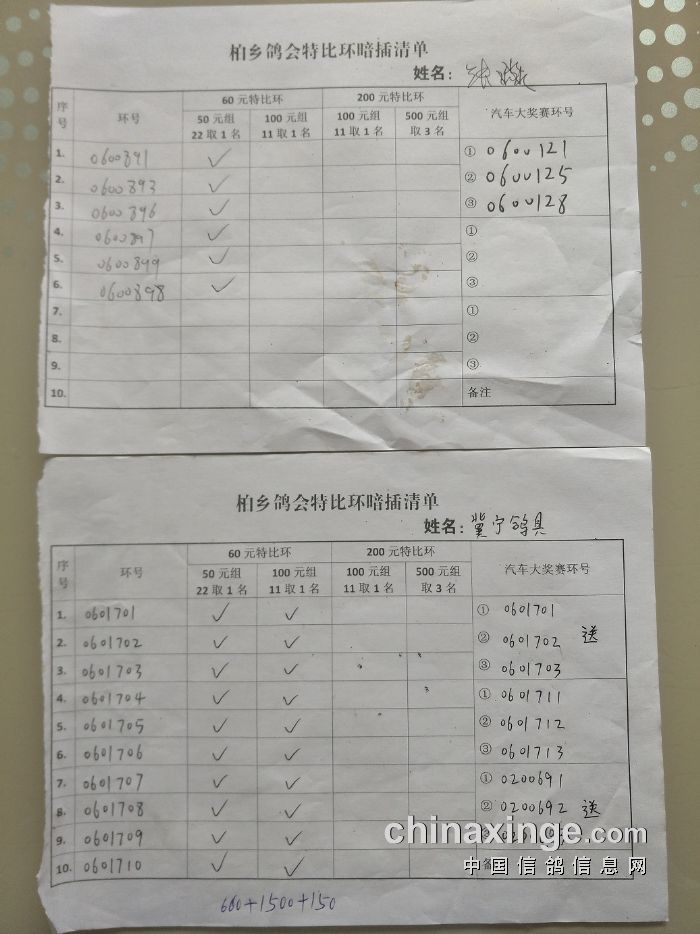 柏乡鸽会特比环暗插清单
姓名：张
序号 环号 60 元特比环 200 元特比环 汽车大奖赛环号
50 元组 22 取 1 名 100 元组 11 取 1 名 100 元组 11 取 1 名 500 元组 取 3 名
1. 0600891 ✓ ① 0600121
2. 0600893 ✓ ② 0600125
3. 0600896 ✓ ③ 0600128
4. 0600897 ✓ ①
5. 0600899 ✓ ②
6. 0600898 ✓ ③
7. ①
8. ②
9. ③
10. 备注
柏乡鸽会特比环暗插清单
姓名：冀宁鸽具
序号 环号 60 元特比环 200 元特比环 汽车大奖赛环号
50 元组 22 取 1 名 100 元组 11 取 1 名 100 元组 11 取 1 名 500 元组 取 3 名
1. 0601701 ✓ ✓ ① 0601701
2. 0601702 ✓ ✓ ② 0601702 送
3. 0601703 ✓ ✓ ③ 0601703
4. 0601704 ✓ ✓ ① 0601711
5. 0601705 ✓ ✓ ② 0601712
6. 0601706 ✓ ✓ ③ 0601713
7. 0601707 ✓ ✓ ① 0200691
8. 0601708 ✓ ✓ ② 0200692 送
9. 0601709 ✓ ✓
10. 0601710 ✓ ✓ 备
600+1500+150
chinaxinge.com
中国信鸽信息网